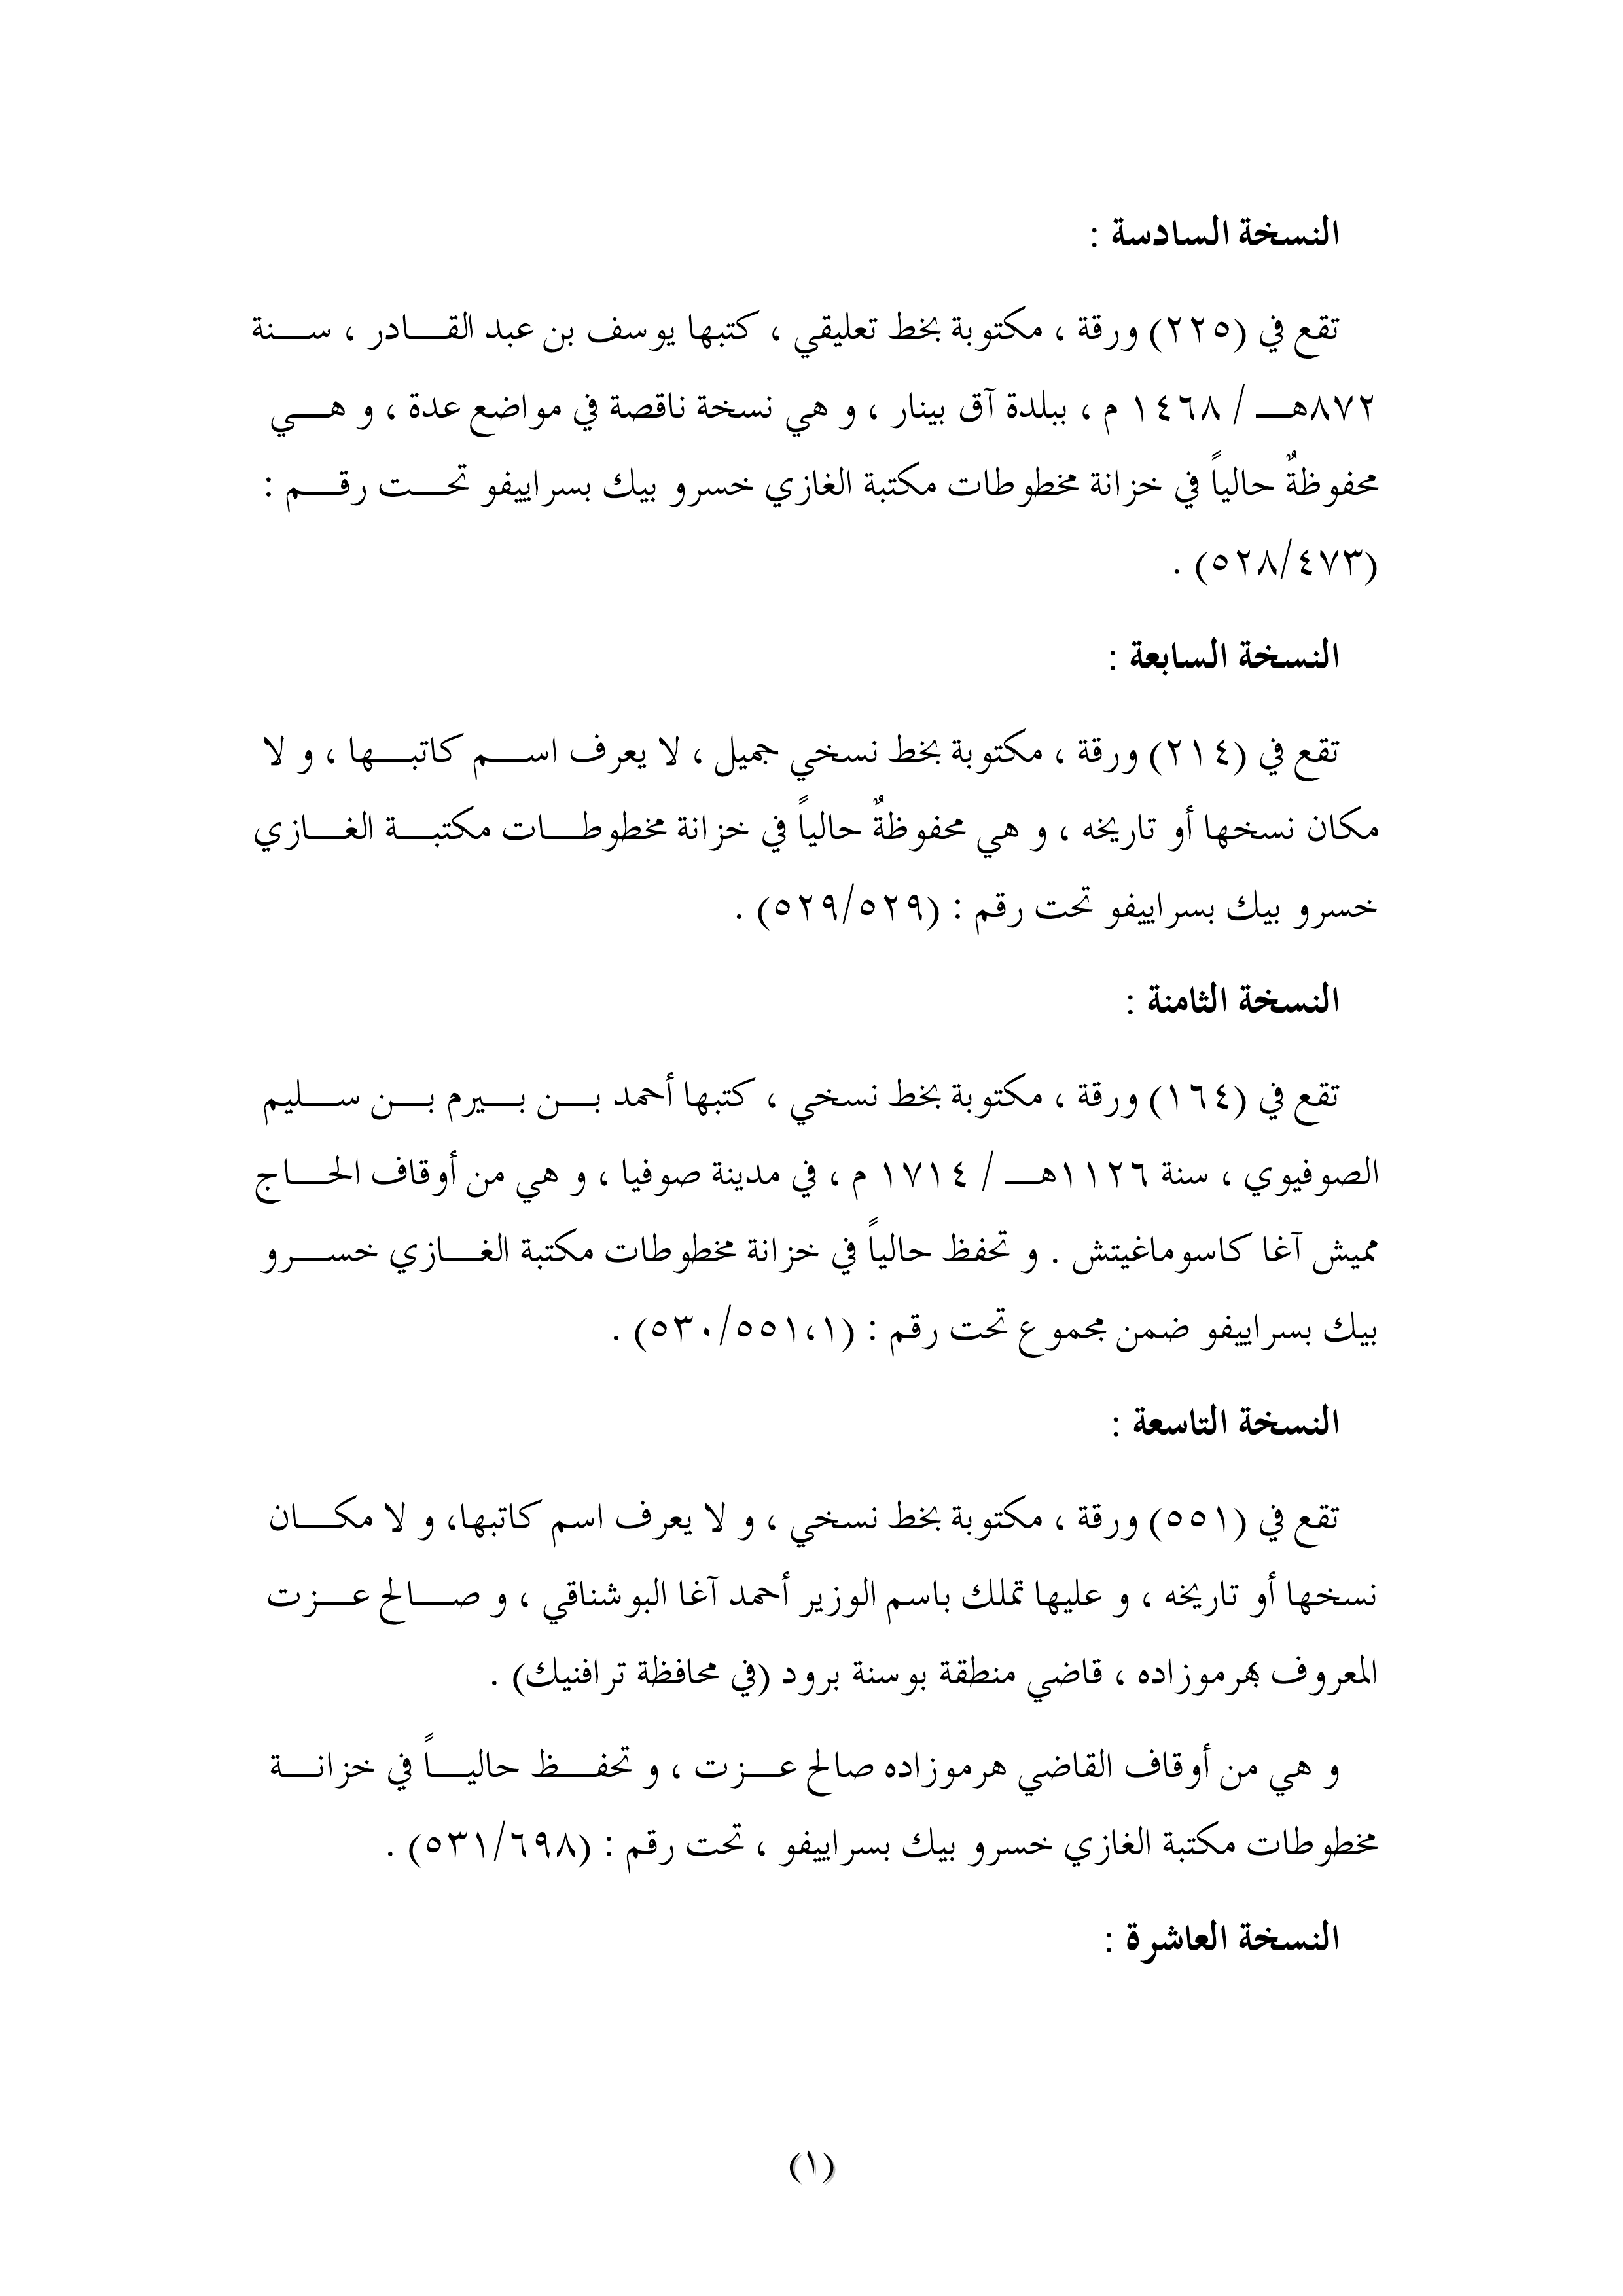 النسخة السادسة :
تقع في (٢٢٥) ورقة ، مكتوبة بخط تعليقي ، كتبها يوسف بن عبد القادر ، سنة
٨٧٢هـ / ١٤٦٨ م ، ببلدة آق بينار ، و هي نسخة ناقصة في مواضع عدة ، و هي
محفوظةٌ حالياً في خزانة مخطوطات مكتبة الغازي خسرو بيك بسراييفو تحت رقم :
(٥٢٨/٤٧٣) .
النسخة السابعة :
تقع في (٢١٤) ورقة ، مكتوبة بخط نسخي جميل ، لا يعرف اسم كاتبها ، و لا
مكان نسخها أو تاريخه ، و هي محفوظةٌ حالياً في خزانة مخطوطات مكتبة الغازي
خسرو بيك بسراييفو تحت رقم : (٥٢٩/٥٢٩) .
النسخة الثامنة :
تقع في (١٦٤) ورقة ، مكتوبة بخط نسخي ، كتبها أحمد بن بيرم بن سليم
الصوفيوي ، سنة ١١٢٦هـ / ١٧١٤ م ، في مدينة صوفيا ، و هي من أوقاف الحاج
مميش آغا كاسوماغيتش . و تحفظ حالياً في خزانة مخطوطات مكتبة الغازي خسرو
بيك بسراييفو ضمن مجموع تحت رقم : (٥٣٠/٥٥١،١) .
النسخة التاسعة :
تقع في (٥٥١) ورقة ، مكتوبة بخط نسخي ، و لا يعرف اسم كاتبها، و لا مكان
نسخها أو تاريخه ، و عليها تملك باسم الوزير أحمد آغا البوشناقي ، و صالح عزت
المعروف بهرموزاده ، قاضي منطقة بوسنة برود (في محافظة ترافنيك) .
و هي من أوقاف القاضي هرموزاده صالح عزت ، و تحفظ حالياً في خزانة
مخطوطات مكتبة الغازي خسرو بيك بسراييفو ، تحت رقم : (٥٣١/٦٩٨) .
النسخة العاشرة :
(١)